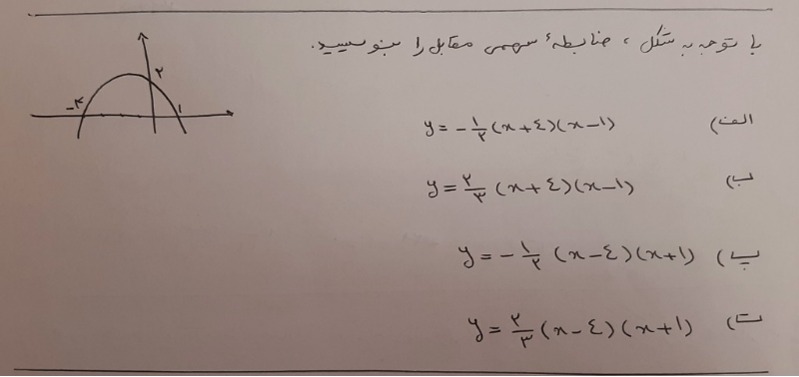 با توجه به شکل ، ضابطهٔ سهمی مقابل را بنویسید.
۲
-۴
۱
الف) y = -۱/۲ (x+٤)(x-۱)
ب) y = ۲/۳ (x+٤)(x-۱)
پ) y = -۱/۲ (x-٤)(x+۱)
ت) y = ۲/۳ (x-٤)(x+۱)